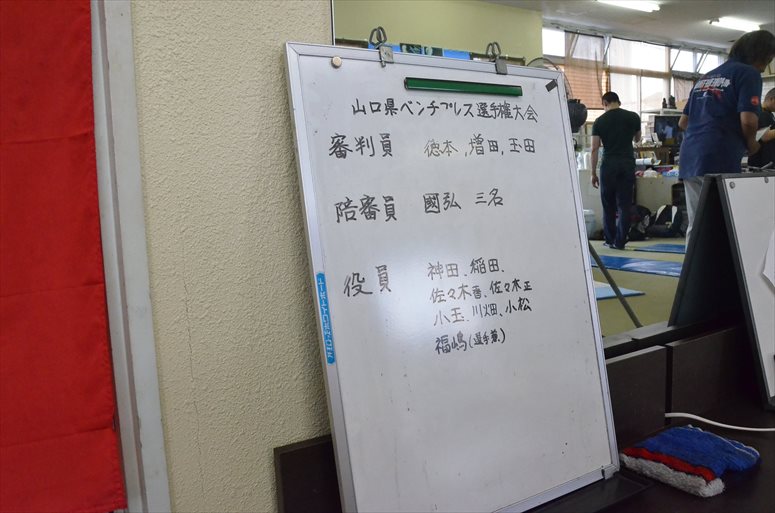 山口県ベンチプレス選手権大会
審判員 徳本、増田、玉田
陪審員 國弘 三名
役員 神田、稲田、
佐々木香、佐々木正
小玉、川畑、小松
福嶋(選手兼)